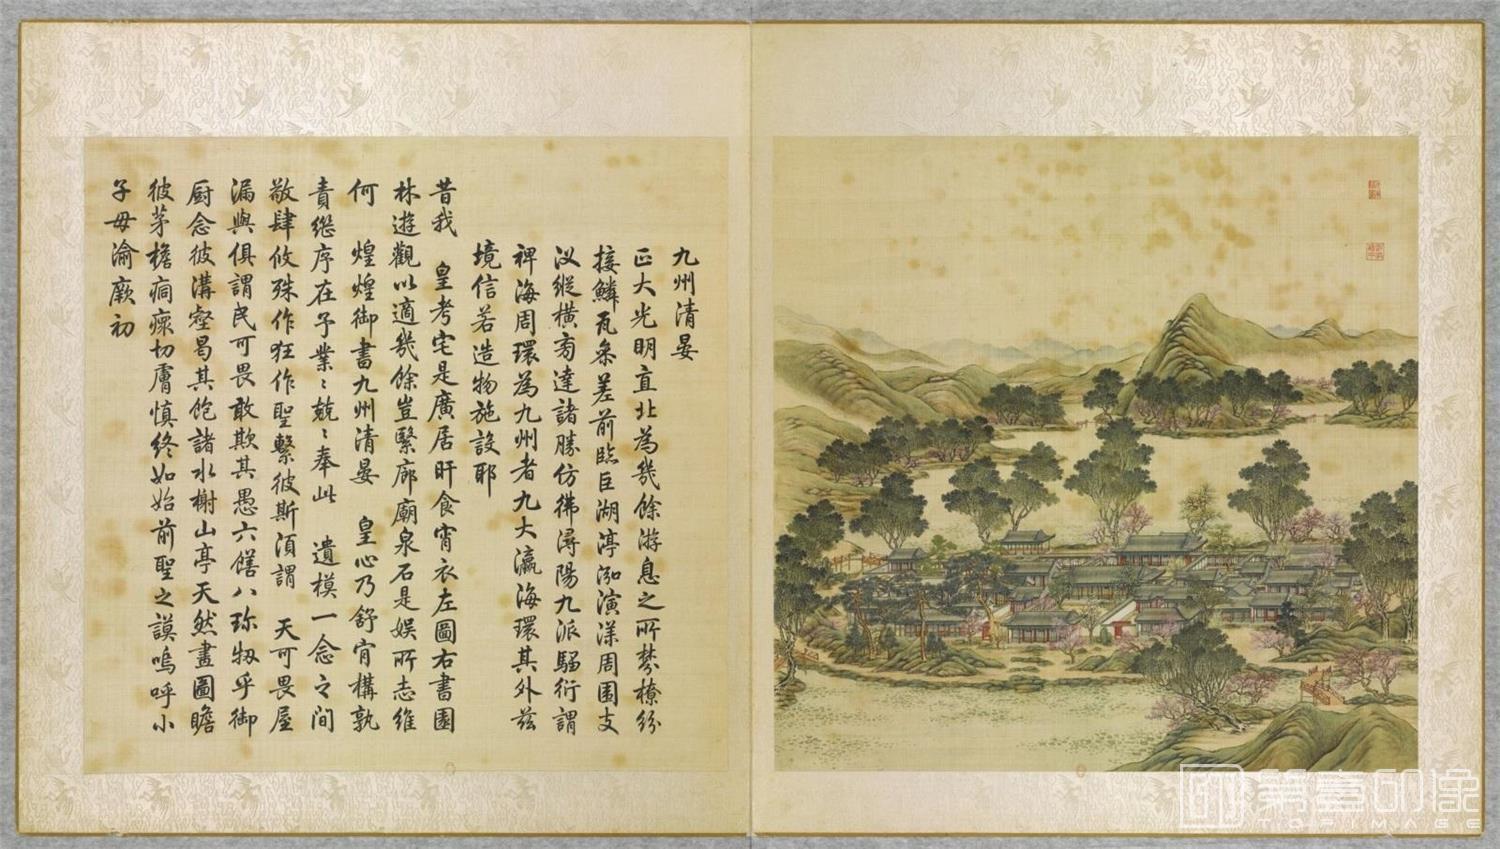 九州清晏
正大光明直北為幾餘游息之所棼橑紛
接鱗瓦參差前臨巨湖渟泓演漾周圍支
汊縱橫旁達諸勝仿彿潯陽九派騶衍謂
裨海周環為九州者九大瀛海環其外茲
境信若造物施設耶
昔我 皇考宅是廣居旰食宵衣左圖右書園
林遊觀以適幾餘豈繄廊廟泉石是娛所志維
何 煌煌御書九州清晏 皇心乃舒肯構孰
責繼序在予業〻兢〻奉此 遺模一念之間
敬肆攸殊作狂作聖繫彼斯須謂 天可畏屋
漏與俱謂民可畏敢欺其愚六饍八珍牣乎御
厨念彼溝壑曷其飽諸水榭山亭天然畫圖瞻
彼茅檐痌瘝切膚慎終如始前聖之謨嗚呼小
子毋渝厥初
第壹印像
TOPIMAGE